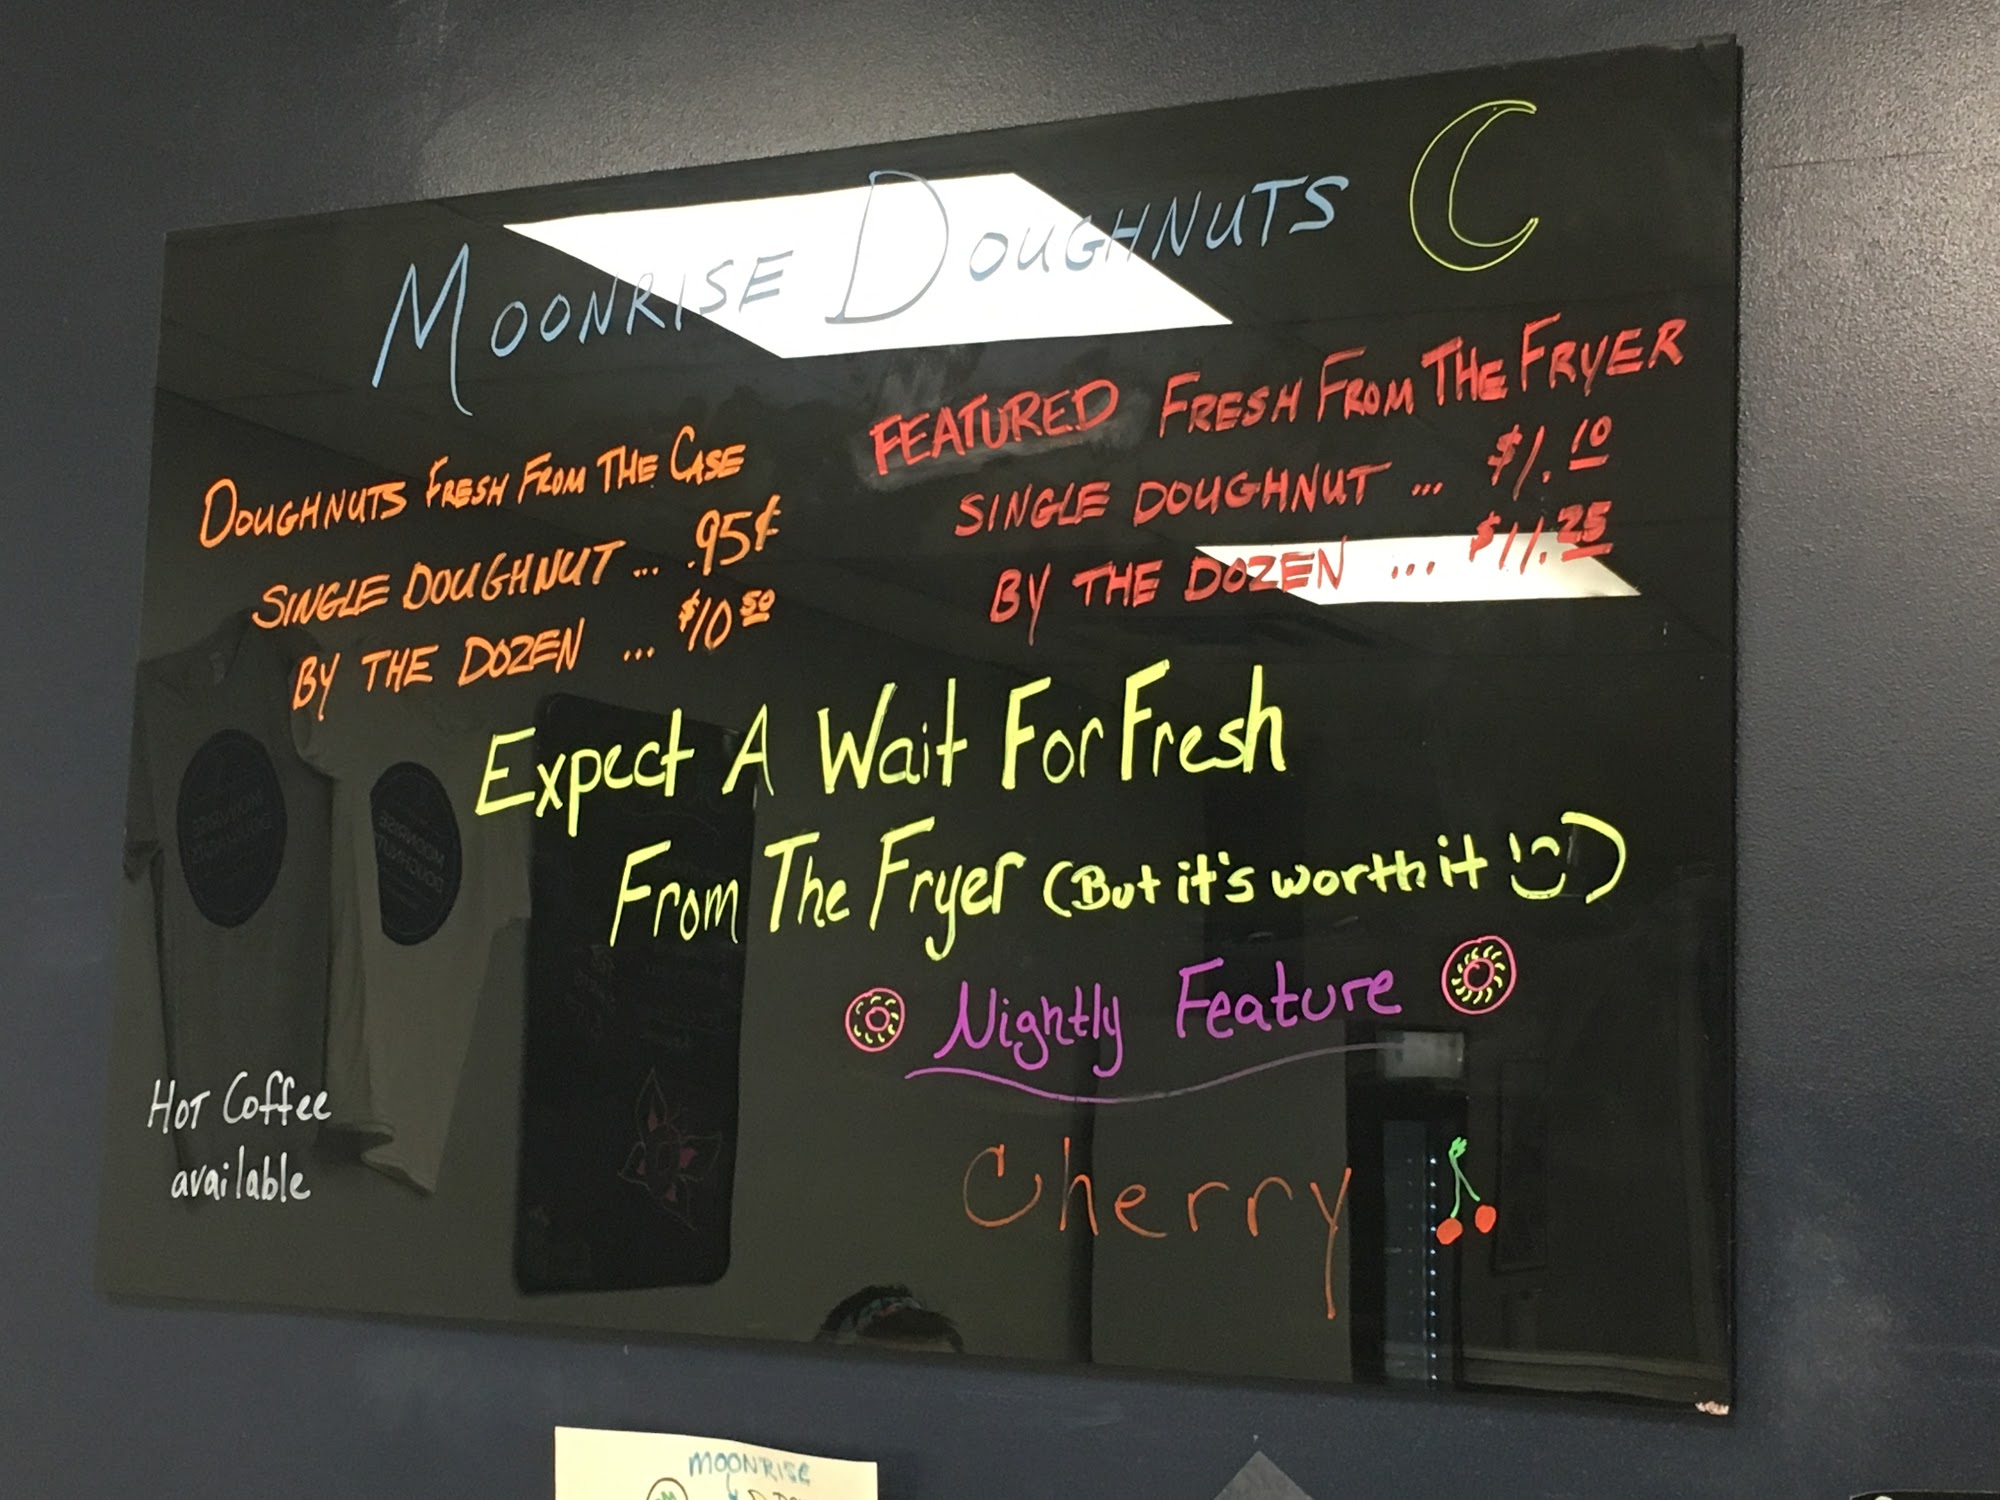 MOONRISE DOUGHNUTS
DOUGHNUTS FRESH FROM THE CASE
SINGLE DOUGHNUT ... .95¢
BY THE DOZEN ... $10 50
FEATURED FRESH FROM THE FRYER
SINGLE DOUGHNUT ... $1.10
BY THE DOZEN ... $11.25
Expect A Wait For Fresh
From The Fryer (But it's worth it)
Nightly Feature
Cherry
HOT Coffee
available
MOONRISE